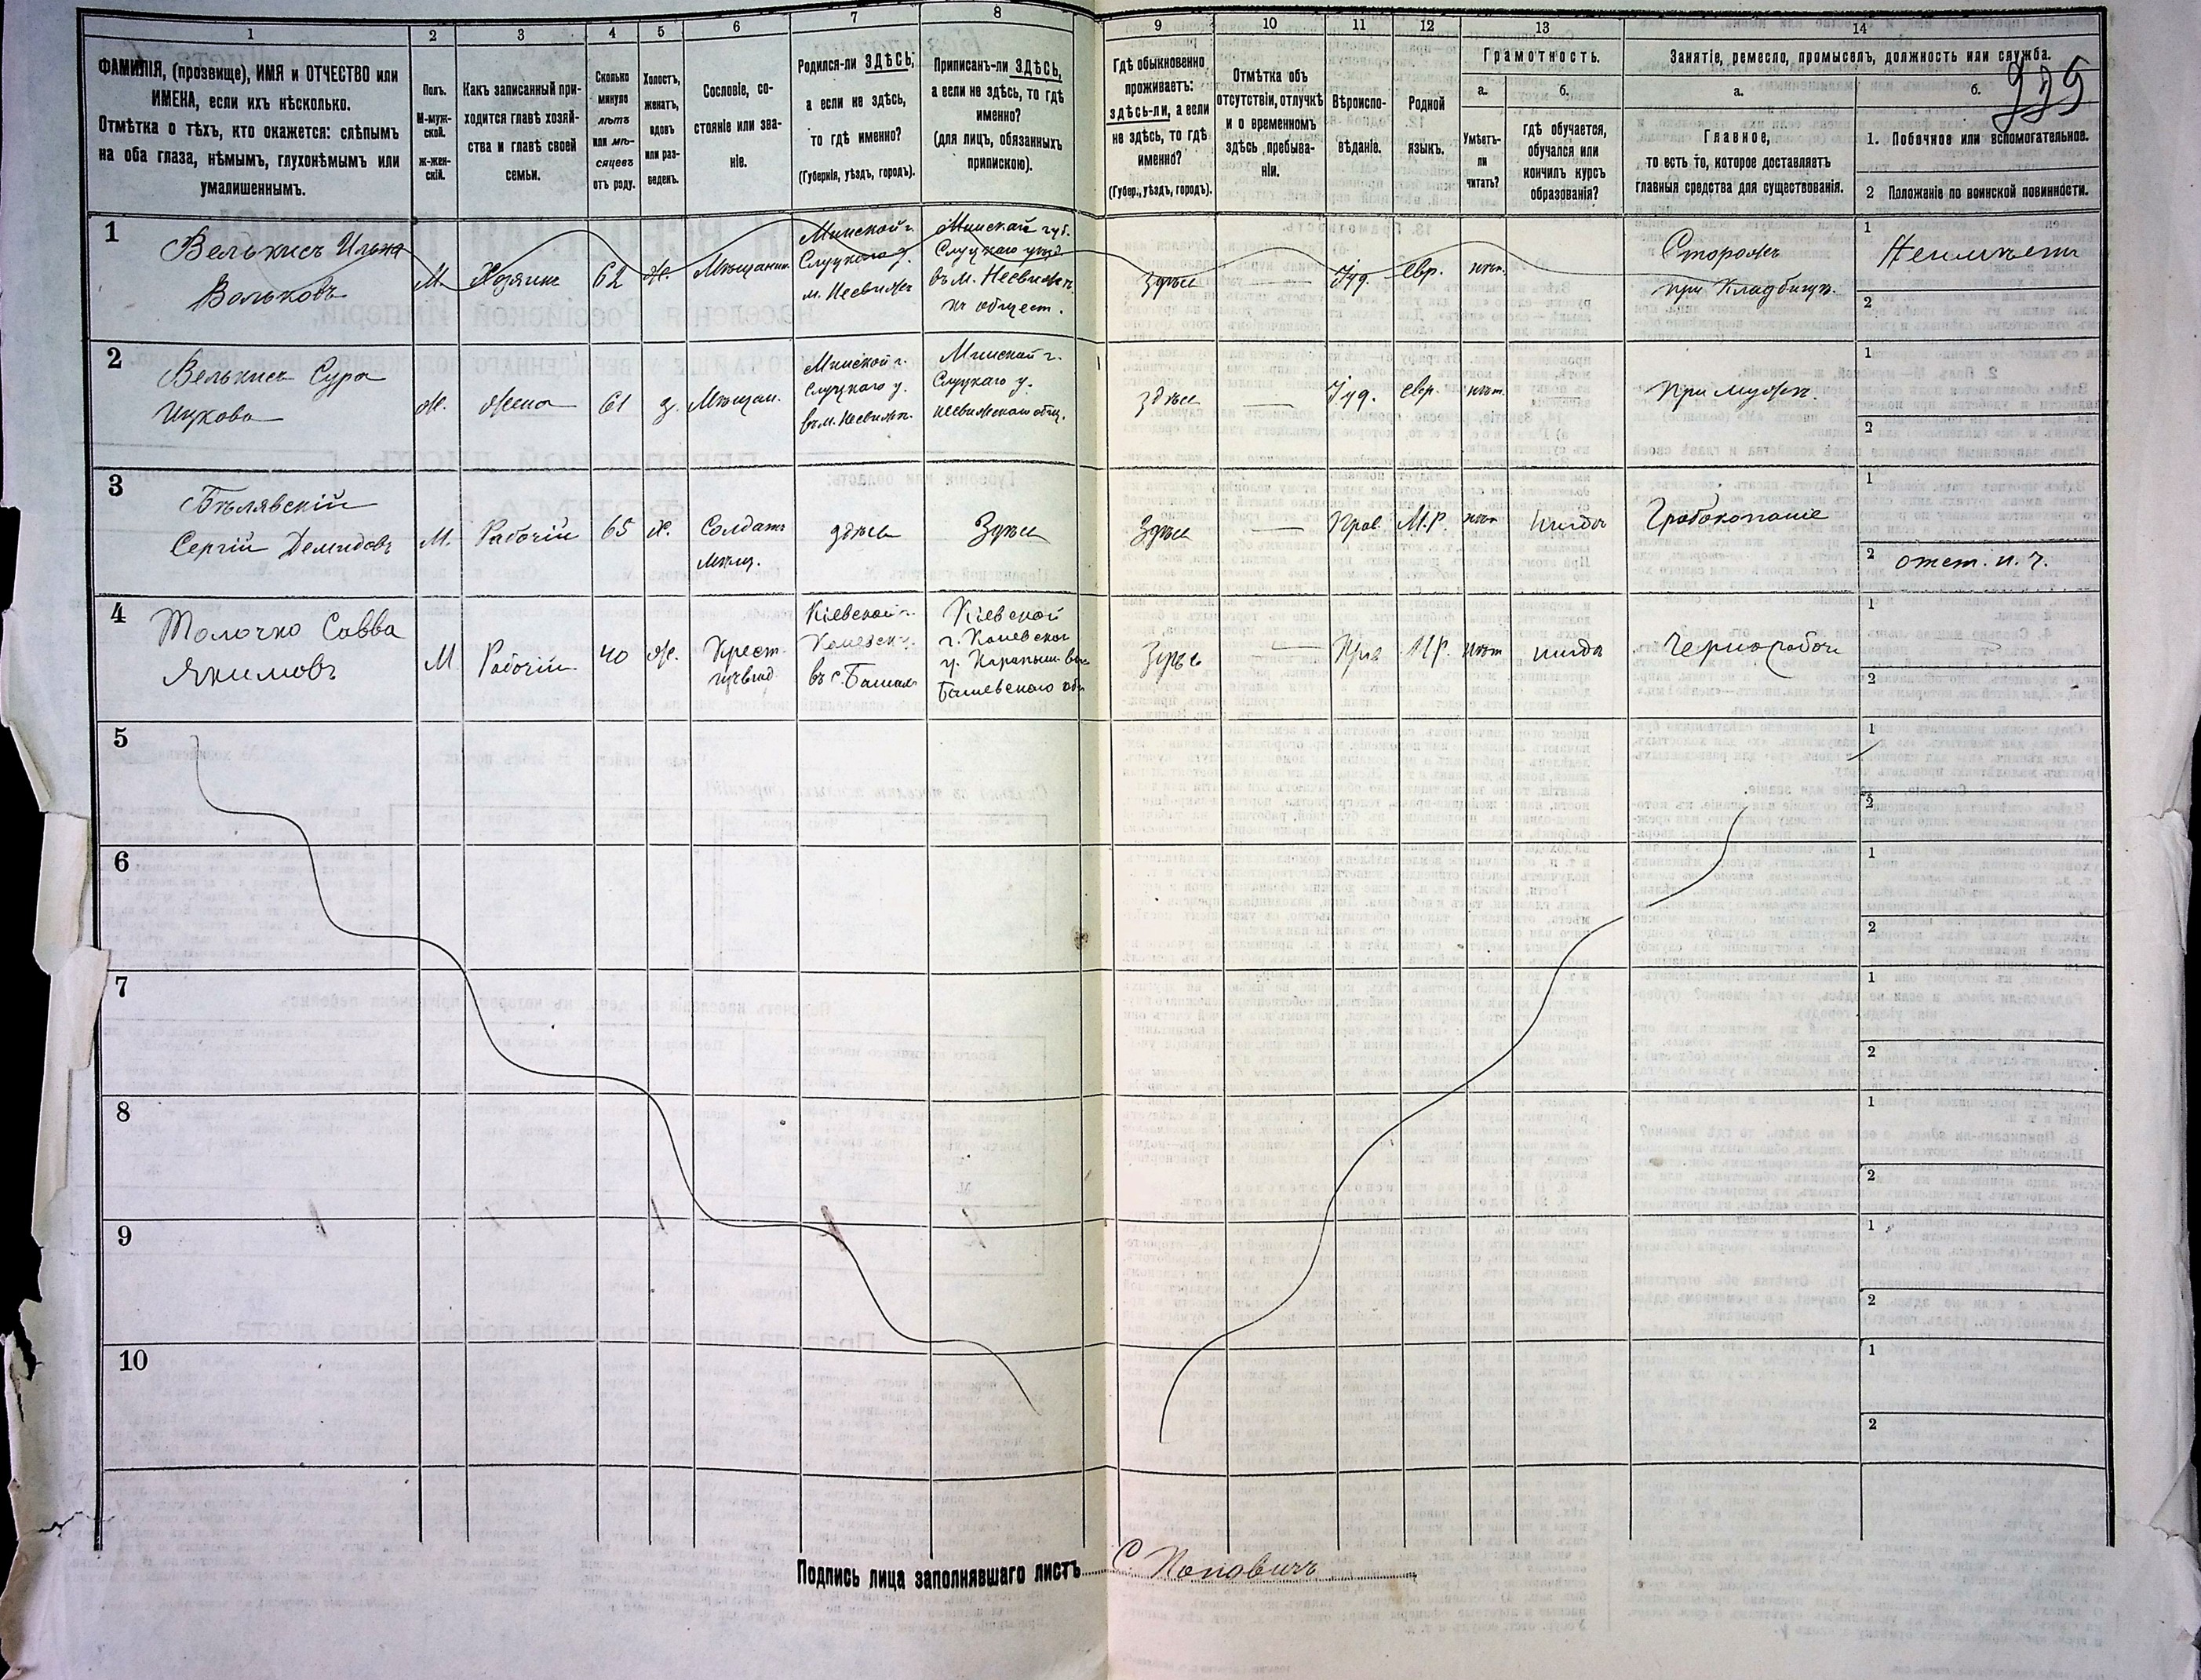 1 2 3 4 5 6 7 8 9 10 11 12 13 14
ФАМИЛІЯ, (прозвище), ИМЯ и ОТЧЕСТВО или
ИМЕНА, если ихъ нѣсколько.
Отмѣтка о тѣхъ, кто окажется: слѣпымъ
на оба глаза, нѣмымъ, глухонѣмымъ или
умалишеннымъ.
Полъ.
М-муж-
ской.
ж-жен-
скій.
Какъ записанный при-
ходится главѣ хозяй-
ства и главѣ своей
семьи.
Сколько
минуло
лѣтъ
или мѣ-
сяцевъ
отъ роду.
Холостъ,
женатъ,
вдовъ
или раз-
веденъ.
Сословіе, со-
стояніе или зва-
ніе.
Родился-ли ЗДѢСЬ;
а если не здѣсь,
то гдѣ именно?
(Губернія, уѣздъ, городъ).
Приписанъ-ли ЗДѢСЬ,
а если не здѣсь, то гдѣ
именно?
(для лицъ, обязанныхъ
припискою).
Гдѣ обыкновенно
проживаетъ:
здѣсь-ли, а если
не здѣсь, то гдѣ
именно?
(Губер., уѣздъ, городъ).
Отмѣтка объ
отсутствіи, отлучкѣ
и о временномъ
здѣсь пребыва-
ніи.
Вѣроиспо-
вѣданіе.
Родной
языкъ.
Грамотность.
а.
Умѣетъ-
ли
читать?
б.
гдѣ обучается,
обучался или
кончилъ курсъ
образованія?
Занятіе, ремесло, промыселъ, должность или служба.
а.
Главное,
то есть то, которое доставляетъ
главныя средства для существованія.
б.
1. Побочное или вспомогательное.
2 Положеніе по воинской повинности.
1
Велькисъ Илько
Вольковъ
М.
Хозяинъ
62
Ж.
Мѣщанин.
Минской г.
Слуцкаго у.
м. Несвижъ
Минской губ.
Слуцкаго уѣзд
въ м. Несвижѣ
къ общест.
Здѣсь
Іуд.
Евр.
нѣт.
Сторожъ
при Кладбищѣ.
1
Неимѣетъ
2
2
Велькисъ Сура
Ицкова
Ж.
Жена
61
з.
Мѣщан.
Минской г.
Слуцкаго у.
въ м. Несвижѣ.
Минской г.
Слуцкаго у.
Несвижскаго общ.
Здѣсь
Іуд.
Евр.
нѣт.
При мужѣ.
1
2
3
Бѣлявскій
Сергій Демидовъ
М.
Рабочій
65
Ж.
Солдатъ
мѣщ.
здѣсь
Здѣсь
Здѣсь
Прав.
М.Р.
нѣт
нигдѣ
Гробокопаніе
1
2
отст. н. ч.
4
Толочко Савва
Якимовъ
М
Рабочій
40
Ж.
Крест.
Кіевской г.
Каневск. у.
въ с.
Кіевской
г. Каневског
у.
Здѣсь
Прав
М.Р.
нѣт
нигдѣ
Чернорабоч
1
2
5
1
2
6
1
2
7
1
2
8
1
2
9
1
2
10
1
2
Подпись лица заполнявшаго листъ С. Поповичъ